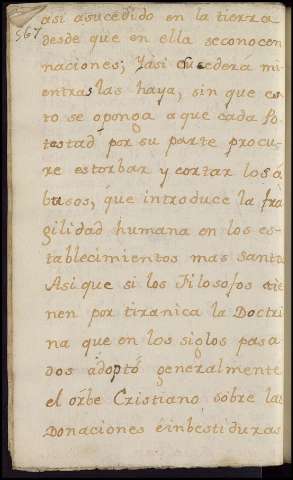 567
asi asucedido en la tierra
desde que en ella seconocen
naciones; Yàsi sucederá mi-
entras las haya, sin que es-
to se oponga aque cada Po-
testad por su parte procu-
re estorbar y cortar los á
busos, que introduce la frà
gilidad humana en los es-
tablecimientos mas Santos
Asi que si los Filosofos tie
nen por tiranica la Doctri
na que en los siglos pasa
dos àdoptó generalmente
el orbe Cristiano sobre las
Donaciones èinbestiduras